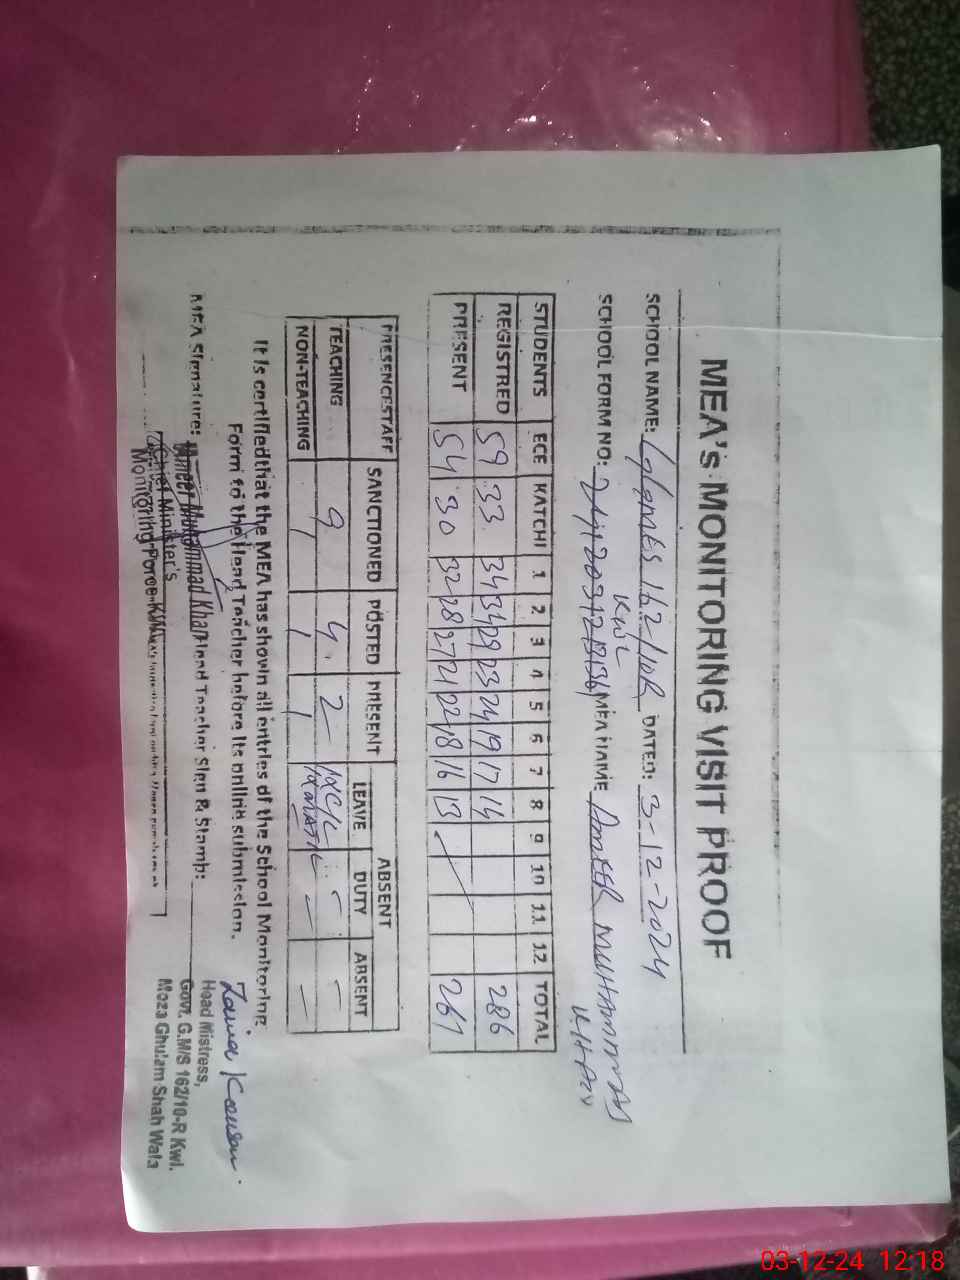 MEA's MONITORING VISIT PROOF
SCHOOL NAME: GGMES 162/10R DATED: 3-12-2024
KWL
SCHOOL FORM NO: MEA NAME AMEER MUHAMMAD
KHAN
STUDENTS ECE KATCHI 1 2 3 4 5 6 7 8 9 10 11 12 TOTAL
REGISTRED 59 33 34 34 29 23 24 19 17 14 286
PRESENT 54 30 32 28 27 21 22 18 16 13 261
PRESENCESTAFF SANCTIONED POSTED PRESENT ABSENT
LEAVE DUTY ABSENT
TEACHING 9 4 2 - -
NON-TEACHING 1 1 1 - -
It is certified that the MEA has shown all entries of the School Monitoring
Form to the Head Teacher before its online submission.
MEA Signature: Ameer Muhammad Khan Head Teacher Sign & Stamp:
Chief Minister's
Monitoring Force
Zaina Kousar
Head Mistress,
Govt. G.M/S 162/10-R Kwl.
Moza Ghulam Shah Wala
03-12-24 12:18